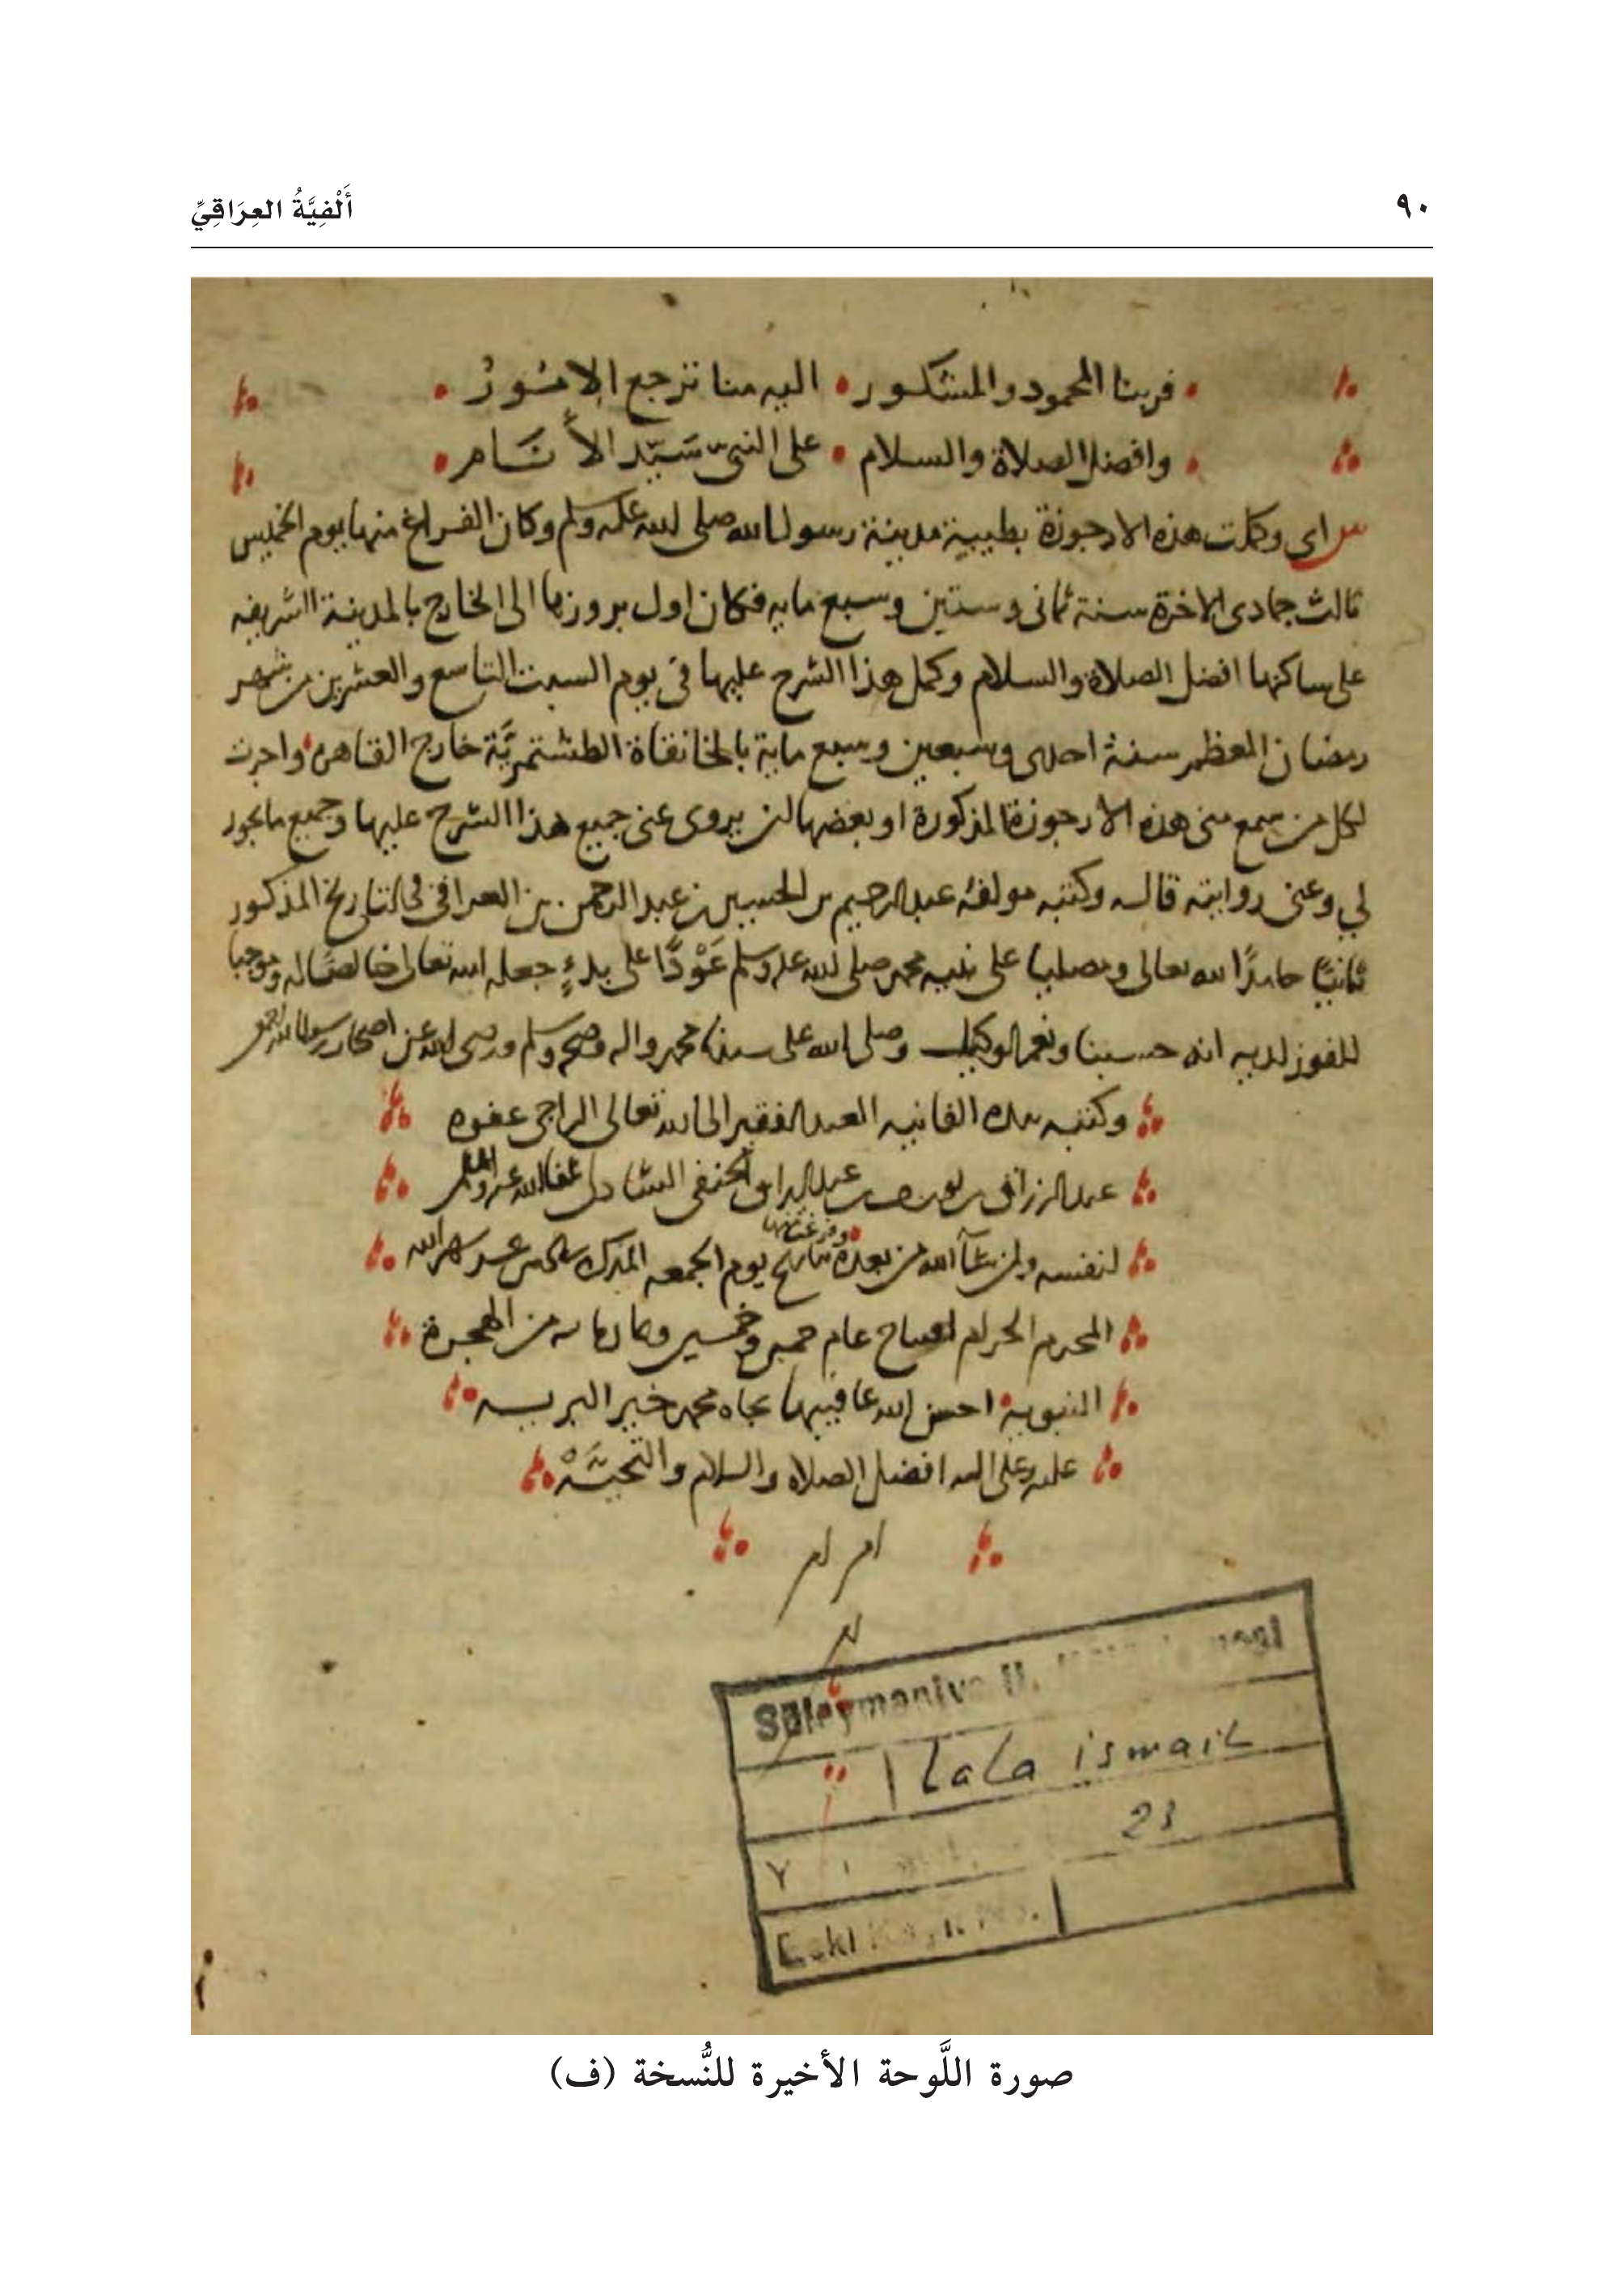 ٩٠
أَلْفِيَّةُ العِرَاقِيِّ
فربنا المحمود والمشكور • اليه منا ترجع الامور •
وافضل الصلاة والسلام • على النبي سَيّد الأنَام •
اي وكملت هذه الارجوزة بطيبة مدينة رسول الله صلى الله عليه وسلم وكان الفراغ منها يوم الخميس
ثالث جمادى الاخرة سنة ثمانى وستين وسبع مايه فكان اول بروزها الى الخارج بالمدينة الشريفه
على ساكنها افضل الصلاة والسلام وكمل هذا الشرح عليها في يوم السبت التاسع والعشرين من شهر
رمضان المعظم سنة احدى وسبعين وسبع ماية بالخانقاة الطشتمريَّة خارج القاهرة واجزت
لكل من سمع منى هذه الارجوزة المذكورة او بعضها ان يروى عنى جميع هذا الشرح عليها وجميع ما يجوز
لي وعنى روايته قاله وكتبه مولفه عبد الرحيم بن الحسين بن عبد الرحمن بن العراقى فى التاريخ المذكور
ثانيًا حامدًا لله تعالى ومصليا على نبيه محمد صلى الله عليه وسلم عَوْدًا على بدءٍ جعله الله تعالى خالصًا له وموجبا
للفوز لديه انه حسبنا ونعم الوكيل وصلى الله على سيدنا محمد واله وصحبه وسلم ورضى الله عن اصحاب رسول الله
وكتبه بيده الفانيه العبد الفقير الى الله تعالى الراجى عفوه
عبد الرزاق بن يوسف بن عبد الرزاق الحنفى الشاذلى عفا الله عنه
لنفسه ولمن شآ الله من بعده وفرغت منها بتاريخ يوم الجمعه المبارك شهر الله
المحرم الحرام افتتاح عام خمس وخمسين وثمان مايه من الهجرة
النبوية احسن الله عاقبتها بجاه محمد خير البريه
عليه وعلى اله افضل الصلاه والسلام والتحيَّهْ
Süleymaniye U.
Lala ismail
23
Eski
صورة اللَّوحة الأخيرة للنُّسخة (ف)